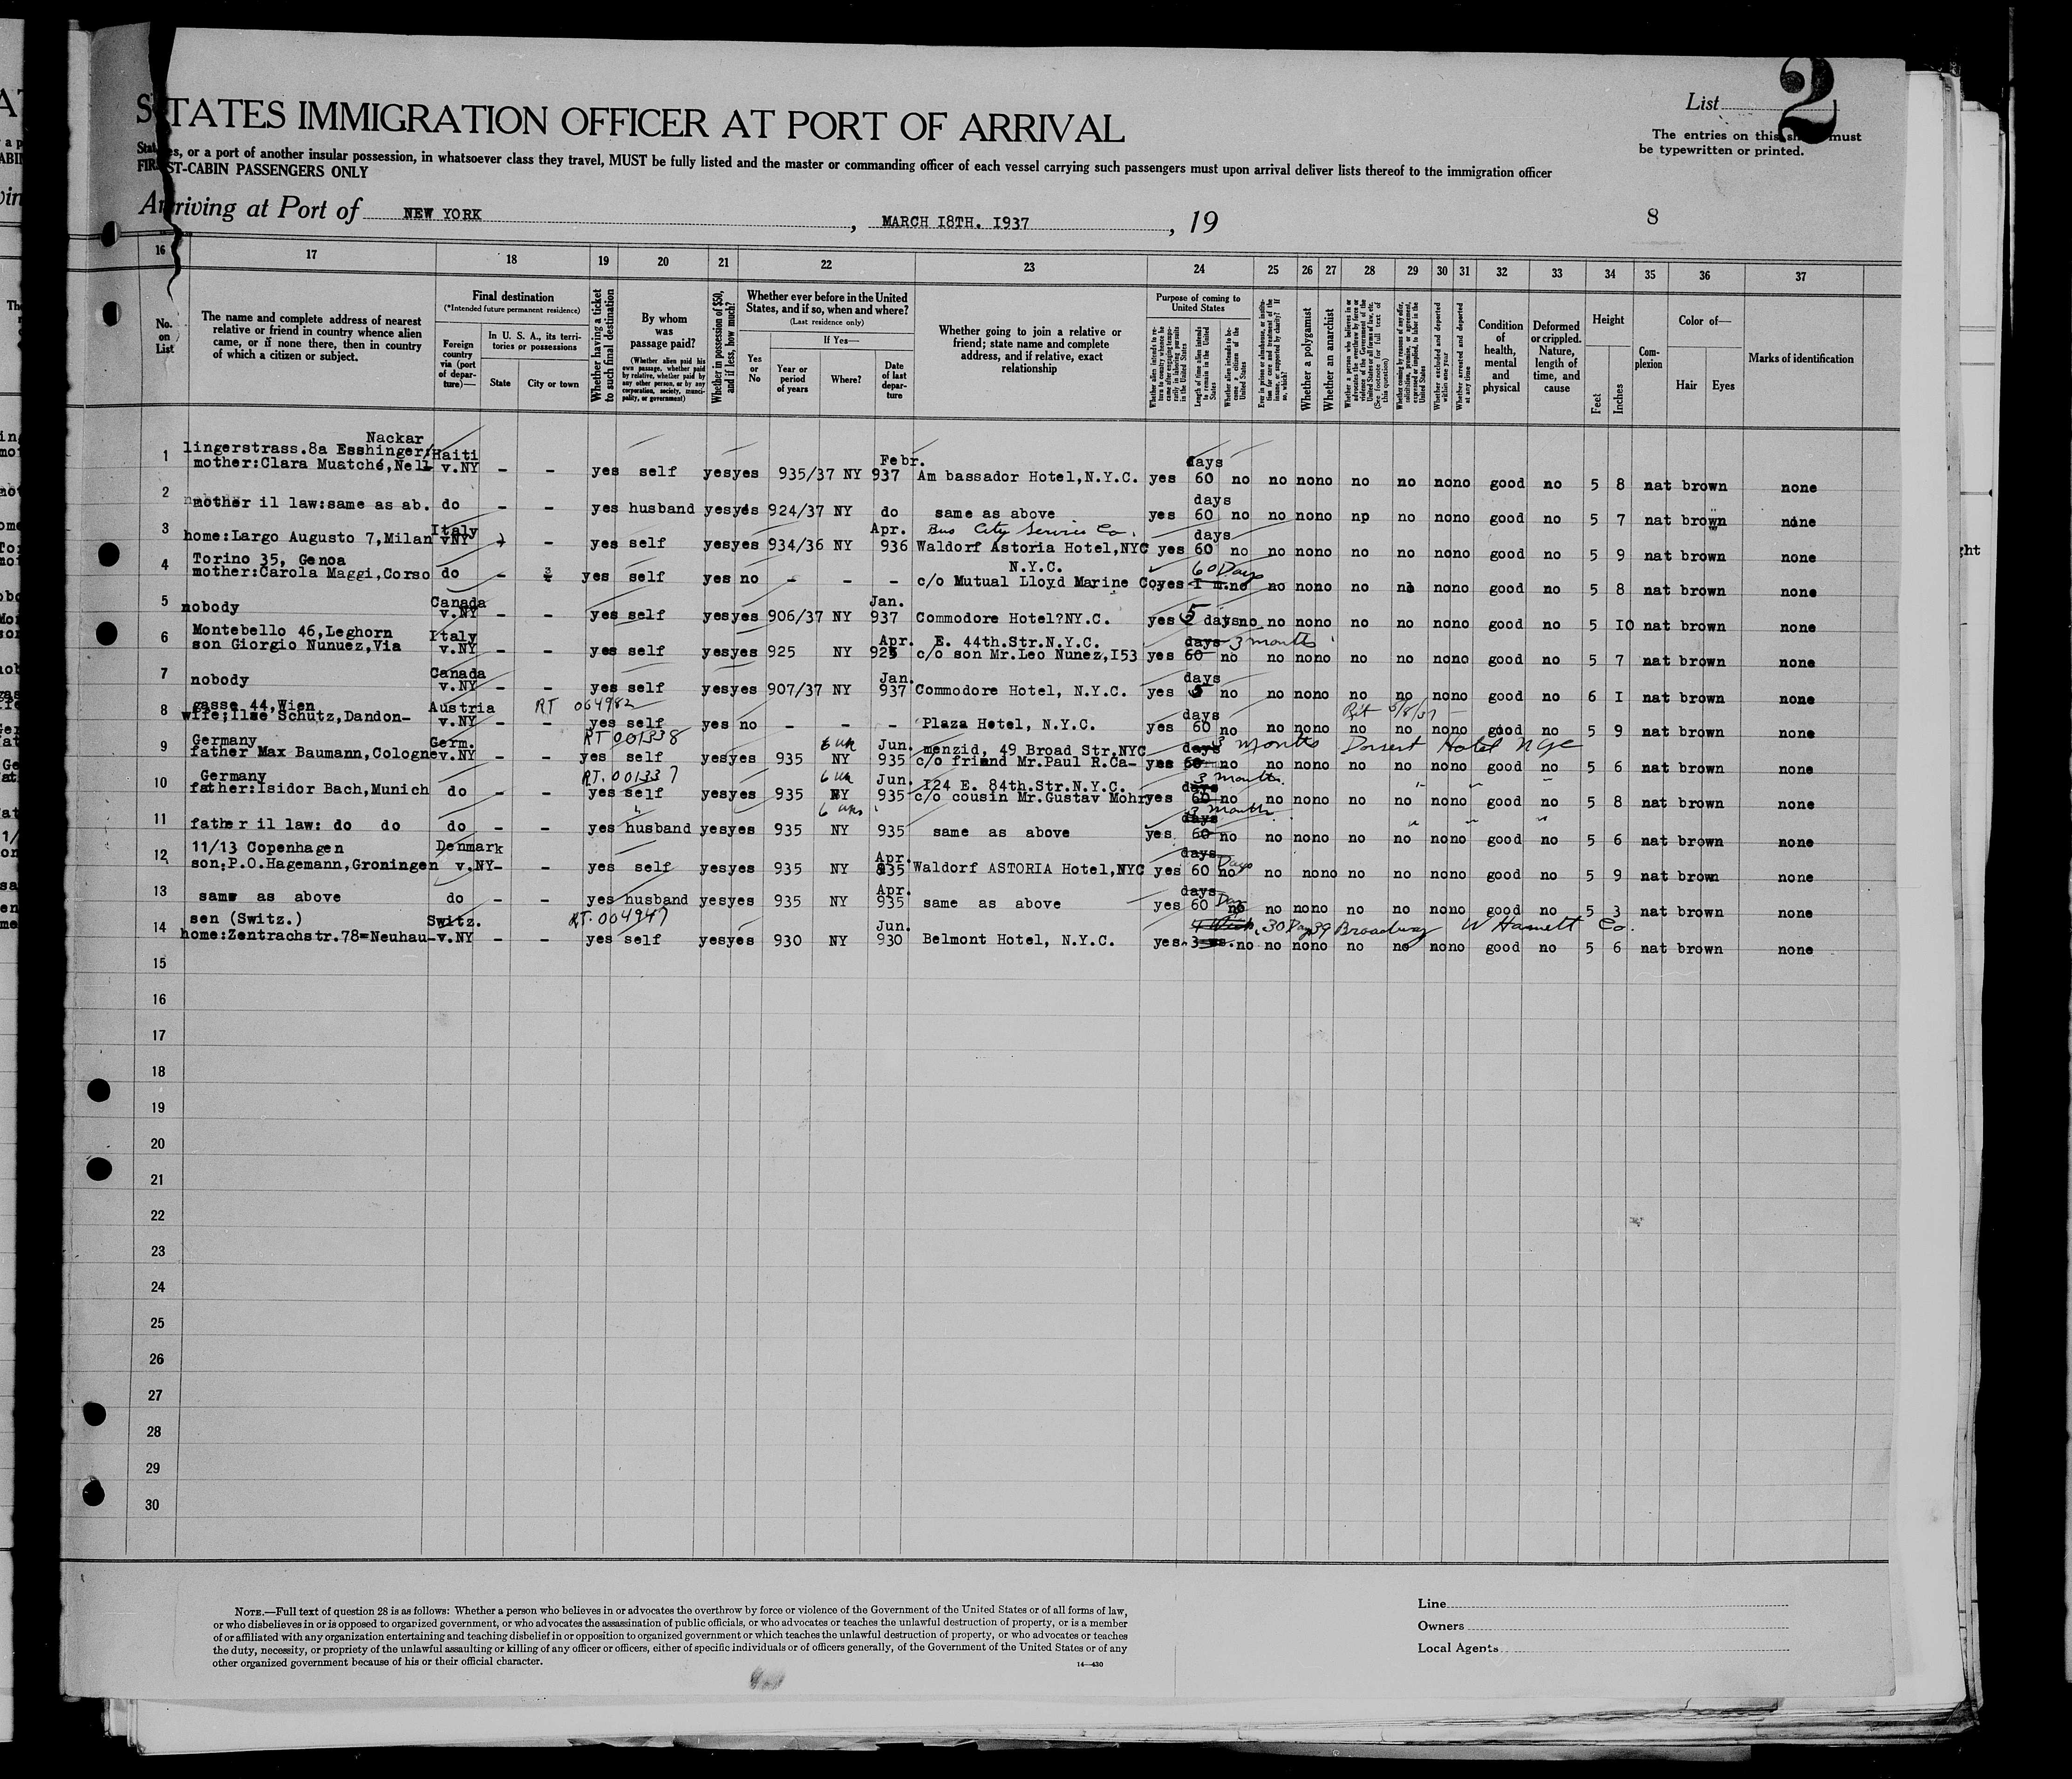 List 2
STATES IMMIGRATION OFFICER AT PORT OF ARRIVAL
The entries on this sheet must
be typewritten or printed.
States, or a port of another insular possession, in whatsoever class they travel, MUST be fully listed and the master or commanding officer of each vessel carrying such passengers must upon arrival deliver lists thereof to the immigration officer
FIRST-CABIN PASSENGERS ONLY
Arriving at Port of NEW YORK, MARCH I8TH. I937, 19
8
16 17 18 19 20 21 22 23 24 25 26 27 28 29 30 31 32 33 34 35 36 37
No. on List
The name and complete address of nearest relative or friend in country whence alien came, or if none there, then in country of which a citizen or subject.
Final destination
(*Intended future permanent residence)
Foreign country via (port of departure)—
In U. S. A., its territories or possessions
State
City or town
Whether having a ticket to such final destination
By whom was passage paid?
(Whether alien paid his own passage, whether paid by relative, whether paid by any other person, or by any corporation, society, municipality, or government)
Whether in possession of $50, and if less, how much?
Whether ever before in the United States, and if so, when and where?
(Last residence only)
Yes or No
If Yes—
Year or period of years
Where?
Date of last departure
Whether going to join a relative or friend; state name and complete address, and if relative, exact relationship
Purpose of coming to United States
Whether alien intends to return to country whence he came after engaging temporarily in laboring pursuits in the United States
Length of time alien intends to remain in the United States
Whether alien intends to become a citizen of the United States
Ever in prison or almshouse, or institution for care and treatment of the insane, or supported by charity? If so, which?
Whether a polygamist
Whether an anarchist
Whether a person who believes in or advocates the overthrow by force or violence of the Government of the United States or all forms of law, etc. (See footnote for full text of this question)
Whether coming by reason of any offer, solicitation, promise, or agreement, expressed or implied, to labor in the United States
Whether excluded and deported within one year
Whether arrested and deported at any time
Condition of health, mental and physical
Deformed or crippled. Nature, length of time, and cause
Height
Feet
Inches
Complexion
Color of—
Hair
Eyes
Marks of identification
Nackar
lingerstrass.8a Esshinger/ Haiti Febr. days
1 mother:Clara Muatché,Nell v.NY - - yes self yes yes 935/37 NY 937 Am bassador Hotel,N.Y.C. yes 60 no no no no no no no no good no 5 8 nat brown none
days
2 mother il law:same as ab. do - - yes husband yes yes 924/37 NY do same as above yes 60 no no no no np no no no good no 5 7 nat brown none
Italy Apr. Bus City Service Co. days
3 home:Largo Augusto 7,Milan v.NY - yes self yes yes 934/36 NY 936 Waldorf Astoria Hotel,NYC yes 60 no no no no no no no no good no 5 9 nat brown none
Torino 35, Genoa N.Y.C. 60 Days
4 mother:Carola Maggi,Corso do - yes self yes no - - - c/o Mutual Lloyd Marine Co, yes I m. no no no no no no no no good no 5 8 nat brown none
Canada Jan.
5 nobody v.NY - - yes self yes yes 906/37 NY 937 Commodore Hotel?NY.C. yes 5 days no no no no no no no no good no 5 IO nat brown none
Montebello 46,Leghorn Italy Apr. E. 44th.Str.N.Y.C. days 3 months
6 son Giorgio Nunuez,Via v.NY - - yes self yes yes 925 NY 925 c/o son Mr.Leo Nunez,I53 yes 60 no no no no no no no no good no 5 7 nat brown none
Canada Jan. days
7 nobody v.NY - - yes self yes yes 907/37 NY 937 Commodore Hotel, N.Y.C. yes 5 no no no no no no no no good no 6 I nat brown none
gasse 44,Wien Austria RT 064982 days
8 wife;Ilse Schutz,Dandon- v.NY - - yes self yes no - - - Plaza Hotel, N.Y.C. yes 60 no no no no no no no no good no 5 9 nat brown none
Germany Germ. RT 001338 6 wk Jun. menzid, 49 Broad Str.NYC days 3 months Dorset Hotel NYC
9 father Max Baumann,Cologne v.NY - - yes self yes yes 935 NY 935 c/o friend Mr.Paul R.Ca- yes 60 no no no no no no no no good no 5 6 nat brown none
Germany RT. 001337 6 wk Jun. I24 E. 84th.Str.N.Y.C. days 3 months
10 father:Isidor Bach,Munich do - - yes self yes yes 935 NY 935 c/o cousin Mr.Gustav Mohr yes 60 no no no no no no no no good no 5 8 nat brown none
" 6 wks days 3 months
11 father il law: do do do - - yes husband yes yes 935 NY 935 same as above yes. 60 no no no no no no no no good no 5 6 nat brown none
11/13 Copenhagen Denmark Apr. days Days
12 son:P.O.Hagemann,Groningen v.NY - - yes self yes yes 935 NY 935 Waldorf ASTORIA Hotel,NYC yes 60 no no no no no no no no good no 5 9 nat brown none
Apr. days
13 same as above do - - yes husband yes yes 935 NY 935 same as above yes 60 no no no no no no no no good no 5 3 nat brown none
sen (Switz.) Switz. RT. 004947 Jun. 30 Days 39 Broadway W Hamett Co.
14 home:Zentrachstr.78=Neuhau- v.NY - - yes self yes yes 930 NY 930 Belmont Hotel, N.Y.C. yes 3 no no no no no no no no good no 5 6 nat brown none
15
16
17
18
19
20
21
22
23
24
25
26
27
28
29
30
NOTE.—Full text of question 28 is as follows: Whether a person who believes in or advocates the overthrow by force or violence of the Government of the United States or of all forms of law,
or who disbelieves in or is opposed to organized government, or who advocates the assassination of public officials, or who advocates or teaches the unlawful destruction of property, or is a member
of or affiliated with any organization entertaining and teaching disbelief in or opposition to organized government or which teaches the unlawful destruction of property, or who advocates or teaches
the duty, necessity, or propriety of the unlawful assaulting or killing of any officer or officers, either of specific individuals or of officers generally, of the Government of the United States or of any
other organized government because of his or their official character.
14—430
Line
Owners
Local Agents